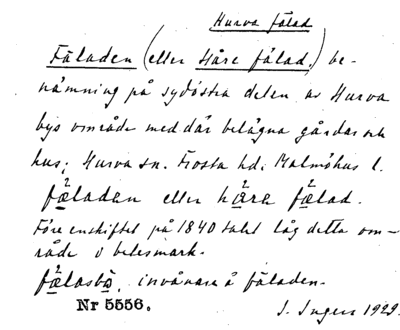 Hurva fälad
Fäladen (eller Håre fälad.) be-
nämning på sydöstra delen av Hurva
bys område med där belägna gårdar och
hus; Hurva sn. Frosta hd. Malmöhus l.
fäladan eller håra fälad.
Före enskiftet på 1840 talet låg detta om-
råde i betesmark.
fälasbo, invånare å fäladen.
Nr 5556.
J. Ingers 1929.